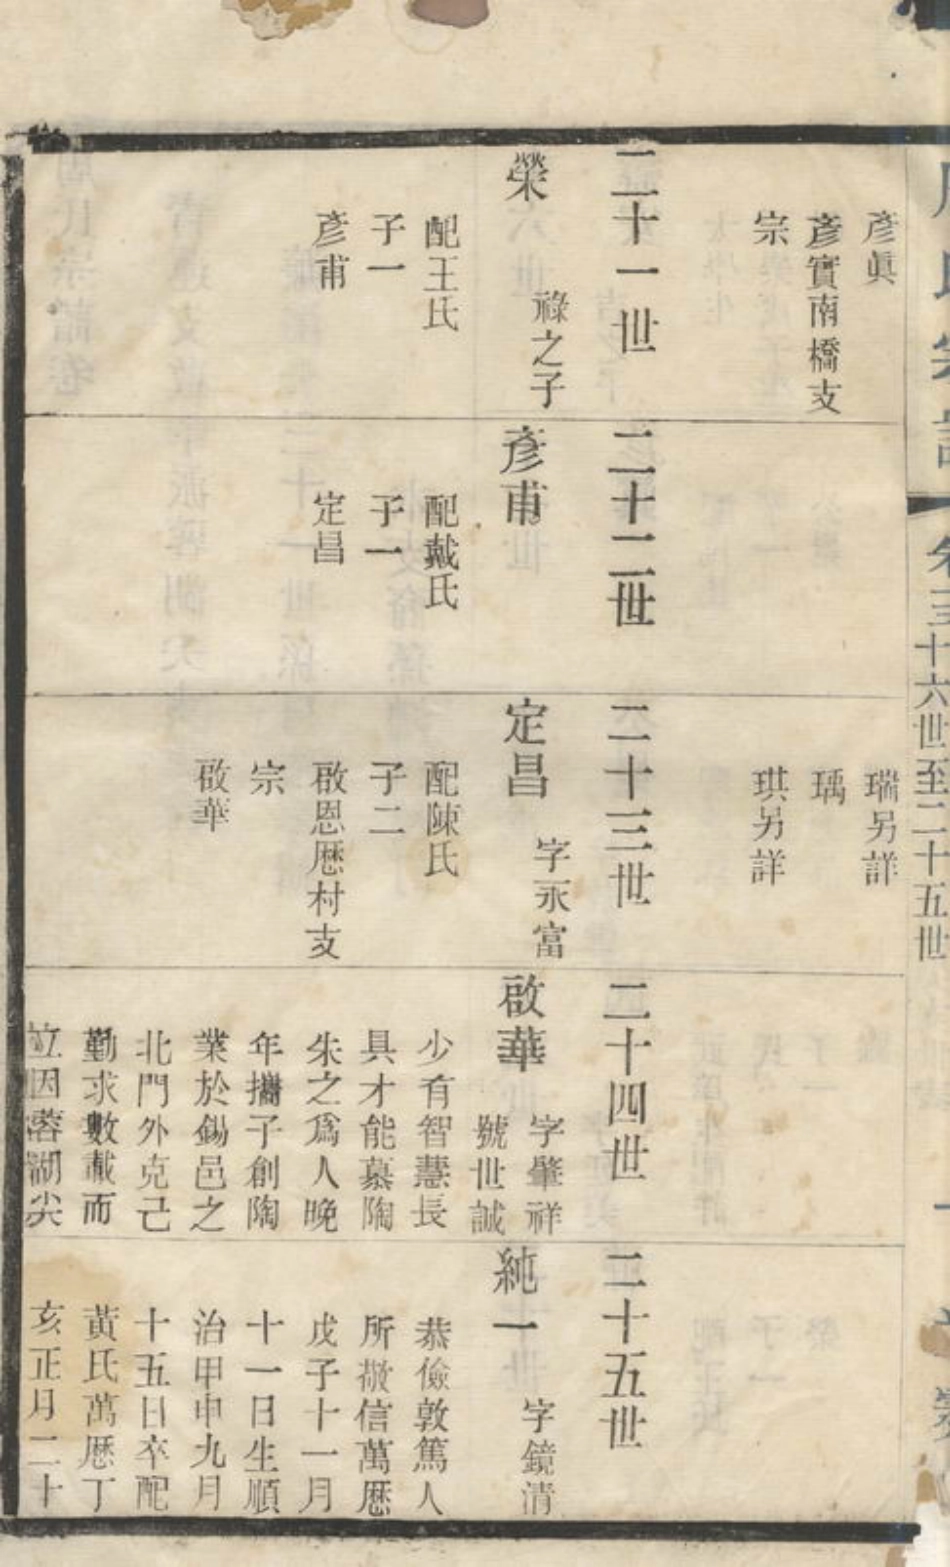 氏宗譜
卷三
十六世至二十五世
彥眞
彥實南橋支
宗
瑞另詳
瑀
琪另詳
二十一世
榮
祿之子
配王氏
子一
彥甫
二十二世
彥甫
配戴氏
子一
定昌
二十三世
定昌
字永富
配陳氏
子二
啟恩厯村支
宗
啟華
二十四世
啟華
字肇祥
號世誠
少有智慧長
具才能慕陶
朱之爲人晚
年攜子創陶
業於錫邑之
北門外克己
勤求數載而
立因蓉湖尖
二十五世
純一
字鏡清
恭儉敦篤人
所敬信萬厯
戊子十一月
十一日生順
治甲申九月
十五日卒配
黃氏萬厯丁
亥正月二十